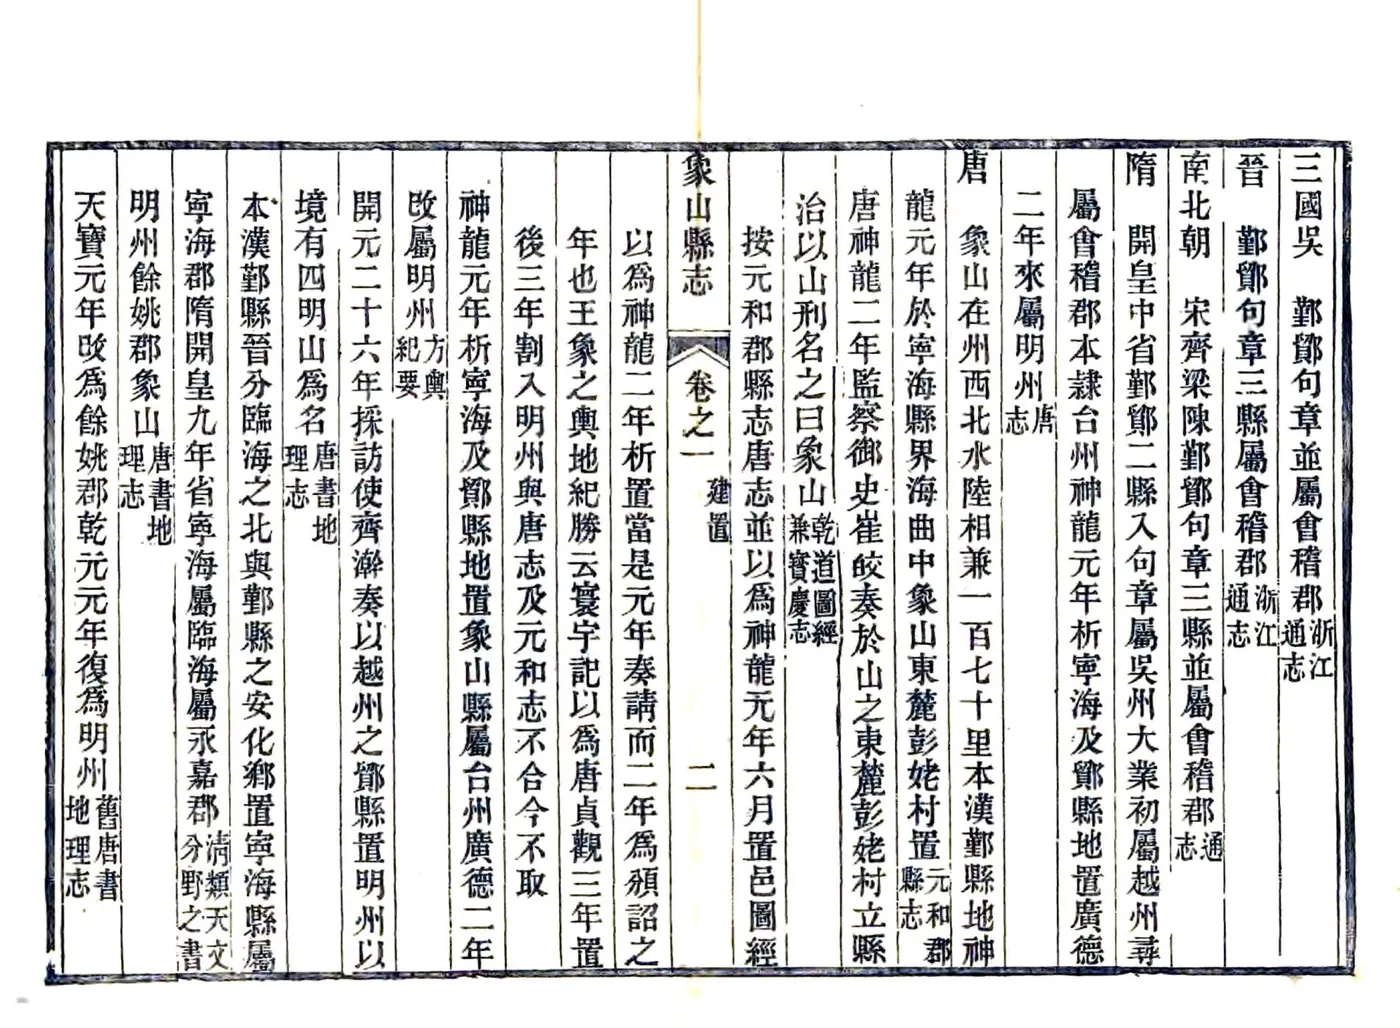 三國吳　鄞鄮句章並屬會稽郡浙江通志
晉　鄞鄮句章三縣屬會稽郡浙江通志
南北朝　宋齊梁陳鄞鄮句章三縣並屬會稽郡通志
隋　開皇中省鄞鄮二縣入句章屬吳州大業初屬越州尋
屬會稽郡本隷台州神龍元年析寧海及鄮縣地置廣德
二年來屬明州唐志
唐　象山在州西北水陸相兼一百七十里本漢鄞縣地神
龍元年於寧海縣界海曲中象山東麓彭姥村置元和郡縣志
唐神龍二年監察御史崔皎奏於山之東麓彭姥村立縣
治以山刑名之曰象山乾道圖經兼寶慶志
按元和郡縣志唐志並以為神龍元年六月置邑圖經
象山縣志　卷之一　建置　二
以為神龍二年析置當是元年奏請而二年為頒詔之
年也王象之輿地紀勝云寰宇記以為唐貞觀三年置
後三年割入明州與唐志及元和志不合今不取
神龍元年析寧海及鄮縣地置象山縣屬台州廣德二年
改屬明州方輿紀要
開元二十六年採訪使齊澣奏以越州之鄮縣置明州以
境有四明山為名唐書地理志
本漢鄞縣晉分臨海之北與鄞縣之安化鄉置寧海縣屬
寧海郡隋開皇九年省寧海屬臨海屬永嘉郡清類天文分野之書
明州餘姚郡象山唐書地理志
天寶元年改爲餘姚郡乾元元年復爲明州舊唐書地理志